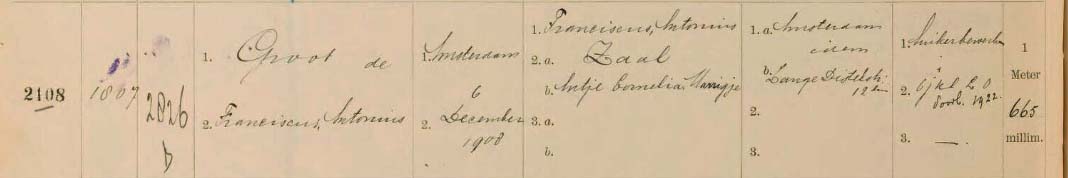 2108
1867
2826
D
1. Groot de
2. Franciscus, Antonius
1. Amsterdam
6
2. December
1908
1. Franciscus, Antonius
2. a. Zaal
b. Antje Cornelia, Marrigje
3. a.
b.
1. a. Amsterdam
idem
b. Lange Distelstr.
12
2.
3.
1. Suikerbewerker
2.
Voorl. 1922.
3. —
1
Meter
665
millim.